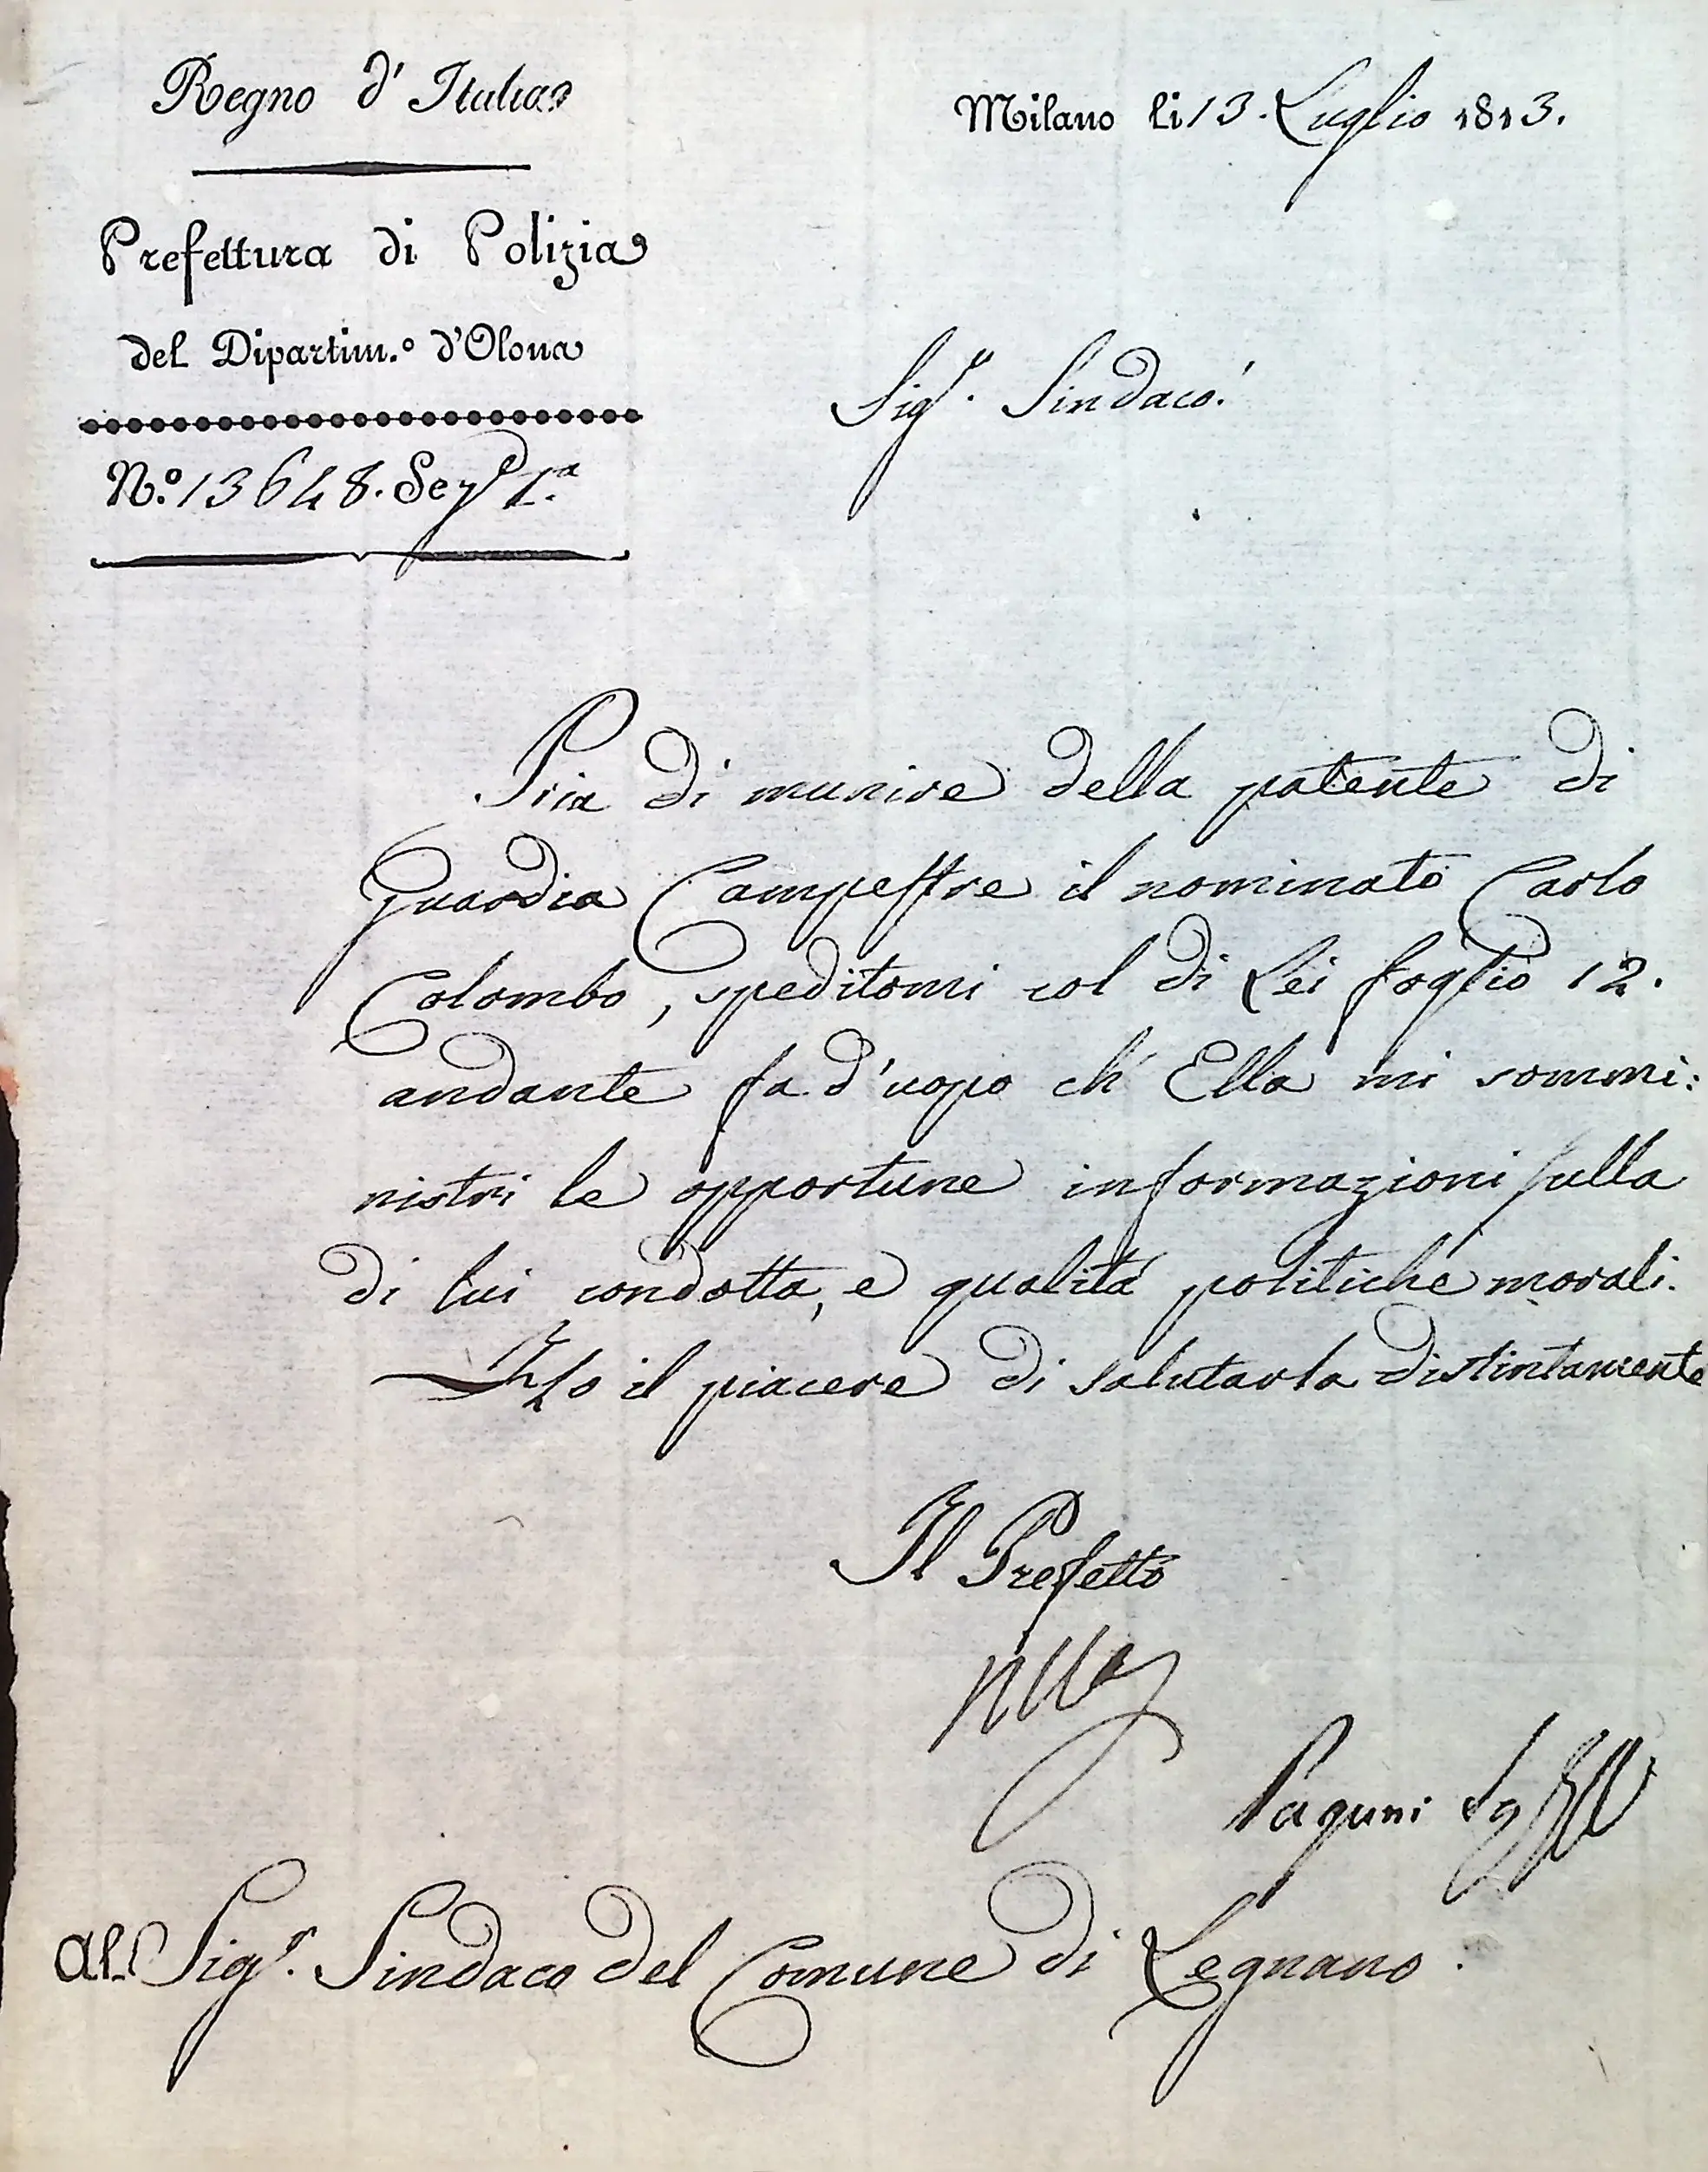 Regno d'Italia
Milano li 13. Luglio 1813.
Prefettura di Polizia
del Dipartim.º d'Olona
N.º 13648. Sez.e 1.a
Sig.r Sindaco!
Pria di munire della patente di
Guardia Campestre il nominato Carlo
Colombo, speditomi col di Lei foglio 12.
andante fa d'uopo ch' Ella mi sommi:
nistri le opportune informazioni sulla
di lui condotta, e qualità politiche morali.
Ho il piacere di salutarla distintamente
Il Prefetto
Pagani
Al Sig.r Sindaco del Comune di Legnano.